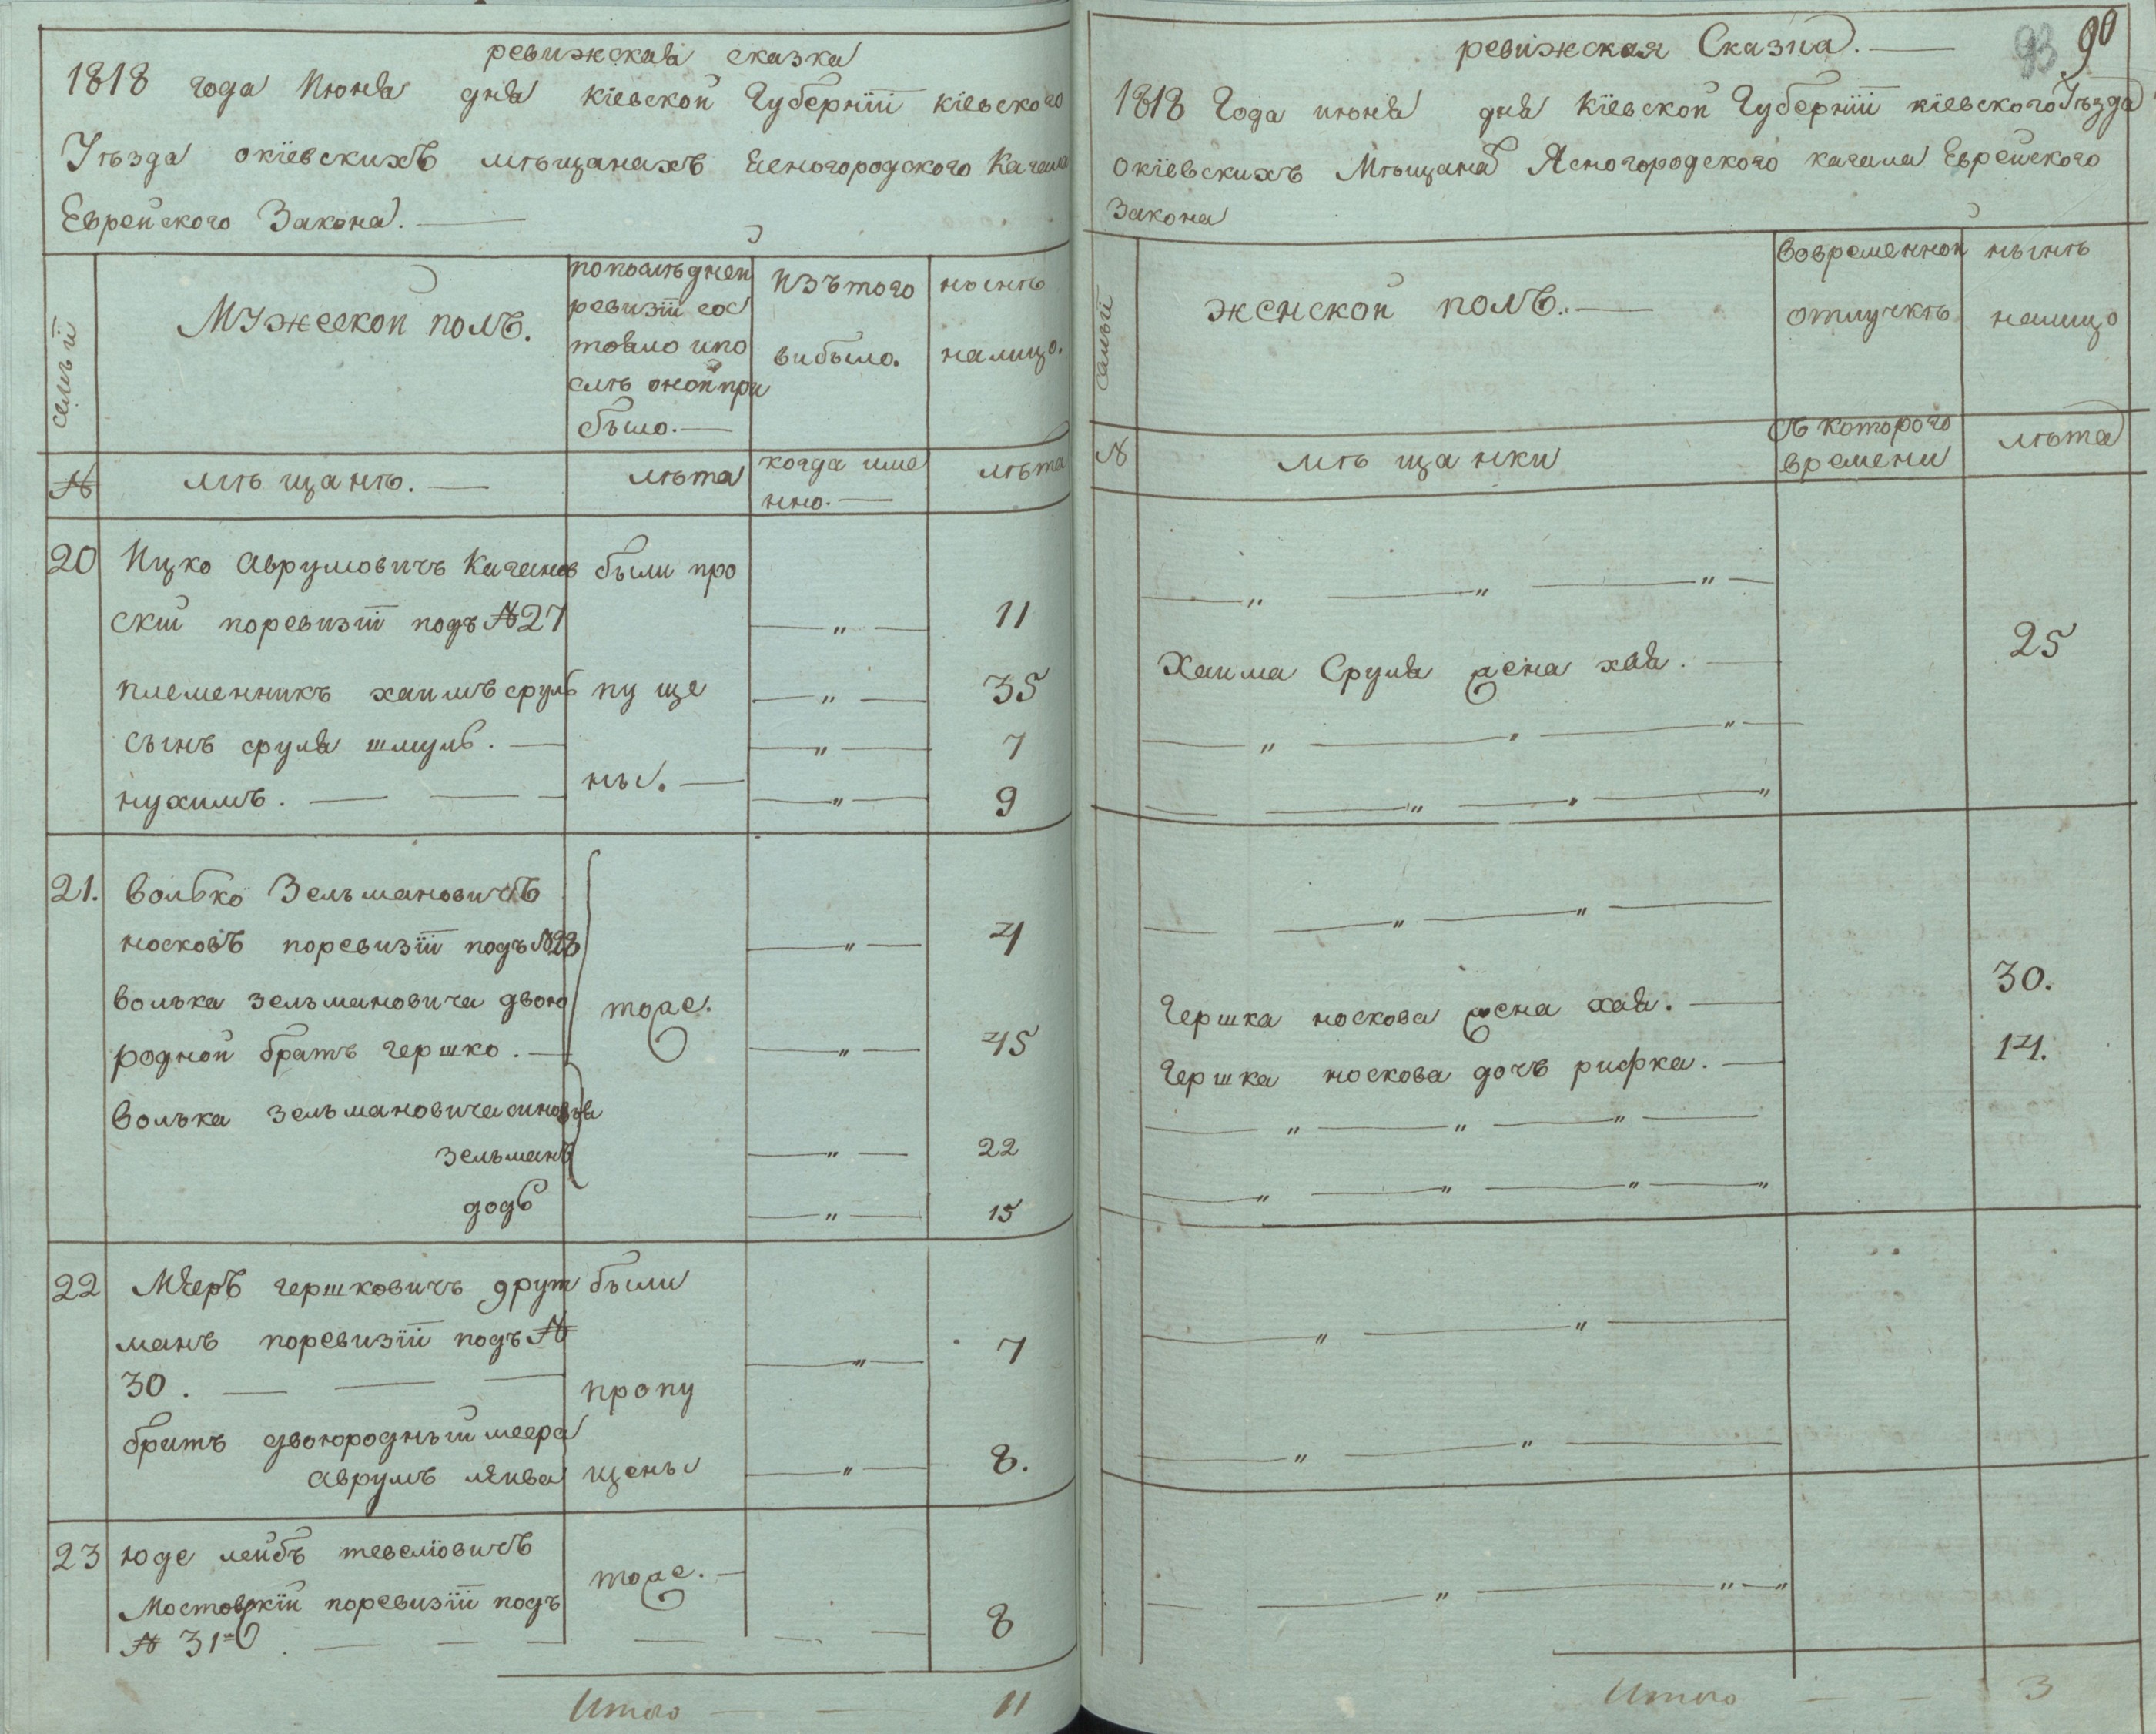 ревижская сказка
1818 года Июня дня Кіевской Губерніи кіевского
Уѣзда окіевскихъ мѣщанахъ Ясногородского Кагала
Еврейского Закона.
семьи
Мужеской полъ.
попослѣдней
ревизіи сос
тояло ипо
слѣ оной при
было.
Изътого
выбыло.
нынѣ
налицо.
№
мѣщанѣ.
лѣта
когда име
нно.
лѣта
20 Ицко Аврумовичъ Каганов были про
скій поревизіи подъ №27 11
племенникъ хаимъ сруль пуще 35
сынъ сруля шмуль. 7
ны.
нухимъ. 9
21. Волько Зельмановичъ
носковъ поревизіи подъ №28 4
Волька зельмановича двою тоже.
родной братъ гершко. 45
Волька зельмановича синовья
зельманъ 22
додь 15
22 Меръ гершковичъ друт были
манъ поревизіи подъ № 7
30. пропу
братъ двоюродный меера
аврумъ щены 8.
23 юде лейбъ тевелювичъ тоже.
Мостовскій поревизіи подъ
№ 31 8
Итого 11
93 90
ревижская Сказка.
1818 Года июня дня Кіевской Губерніи кіевского Уѣзда
окіевскихъ Мѣщана Ясногородского кагала Еврейского
Закона
женской полъ.
вовременной
отлучкѣ
нынѣ
налицо
№
мѣщанки
съ которого
времени
лѣта
Хаима Сруля жена хая. 25
Гершка носкова жена хая. 30.
Гершка носкова дочъ рифка. 14.
Итого 3